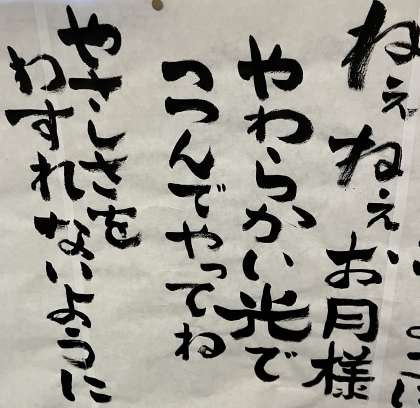 ねぇねぇお月様
やわらかい光で
つつんでやってね
やさしさを
わすれないように